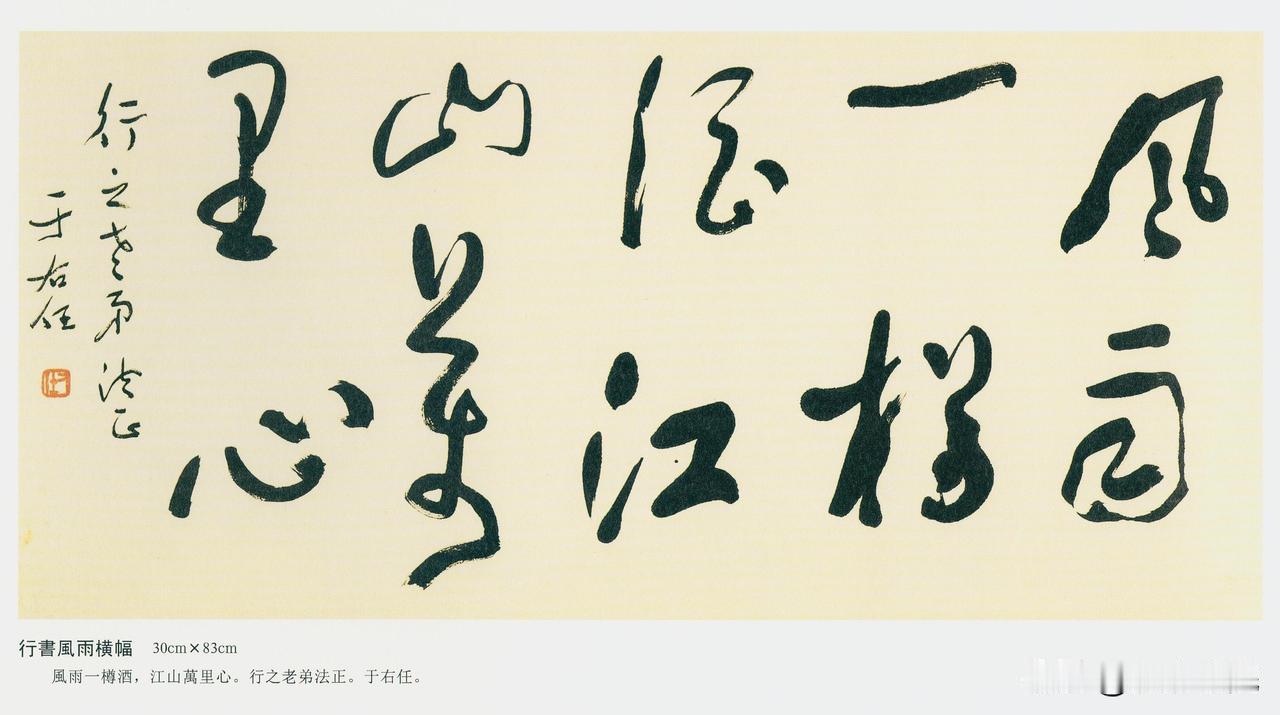 風雨
一樽
酒江
山萬
里心
行之老弟法正
于右任
行書風雨橫幅 30cm×83cm
風雨一樽酒，江山萬里心。行之老弟法正。于右任。